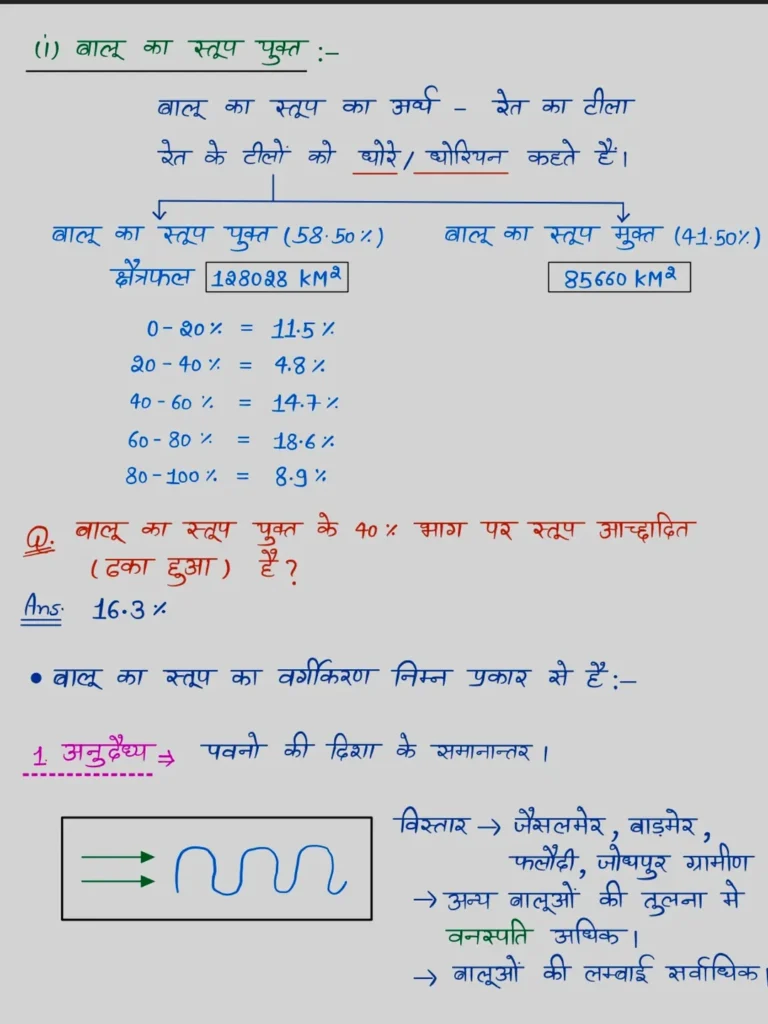 (i) बालू का स्तूप युक्त :-
बालू का स्तूप का अर्थ - रेत का टीला
रेत के टीलों को धोरे / धोरियन कहते हैं।
बालू का स्तूप युक्त (58.50%)
क्षैत्रफल 128028 KM²
बालू का स्तूप मुक्त (41.50%)
85660 KM²
0-20% = 11.5%
20-40% = 4.8%
40-60% = 14.7%
60-80% = 18.6%
80-100% = 8.9%
Q. बालू का स्तूप युक्त के 40% भाग पर स्तूप आच्छादित
(ढका हुआ) है?
Ans. 16.3%
• बालू का स्तूप का वर्गीकरण निम्न प्रकार से है:-
1. अनुदैध्य ⇒ पवनो की दिशा के समानान्तर।
विस्तार → जैसलमेर, बाड़मेर,
फलौदी, जोधपुर ग्रामीण
→ अन्य बालूओं की तुलना मे
वनस्पति अधिक।
→ बालूओं की लम्बाई सर्वाधिक।